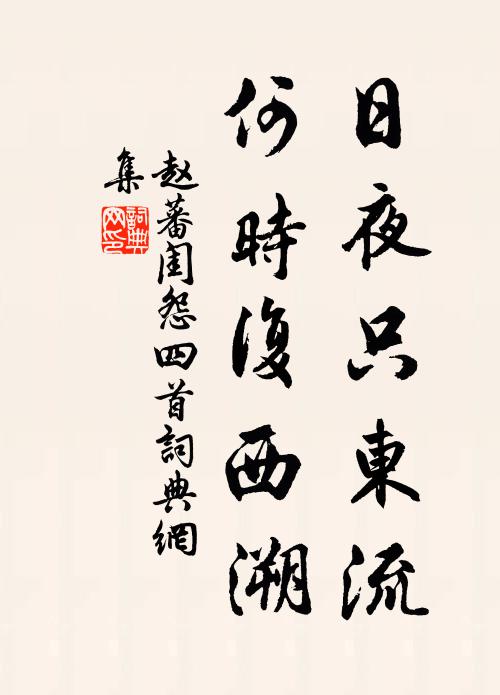 日夜只東流
何時復西溯
赵蕃閨怨四首詞典網
集
詞典網印